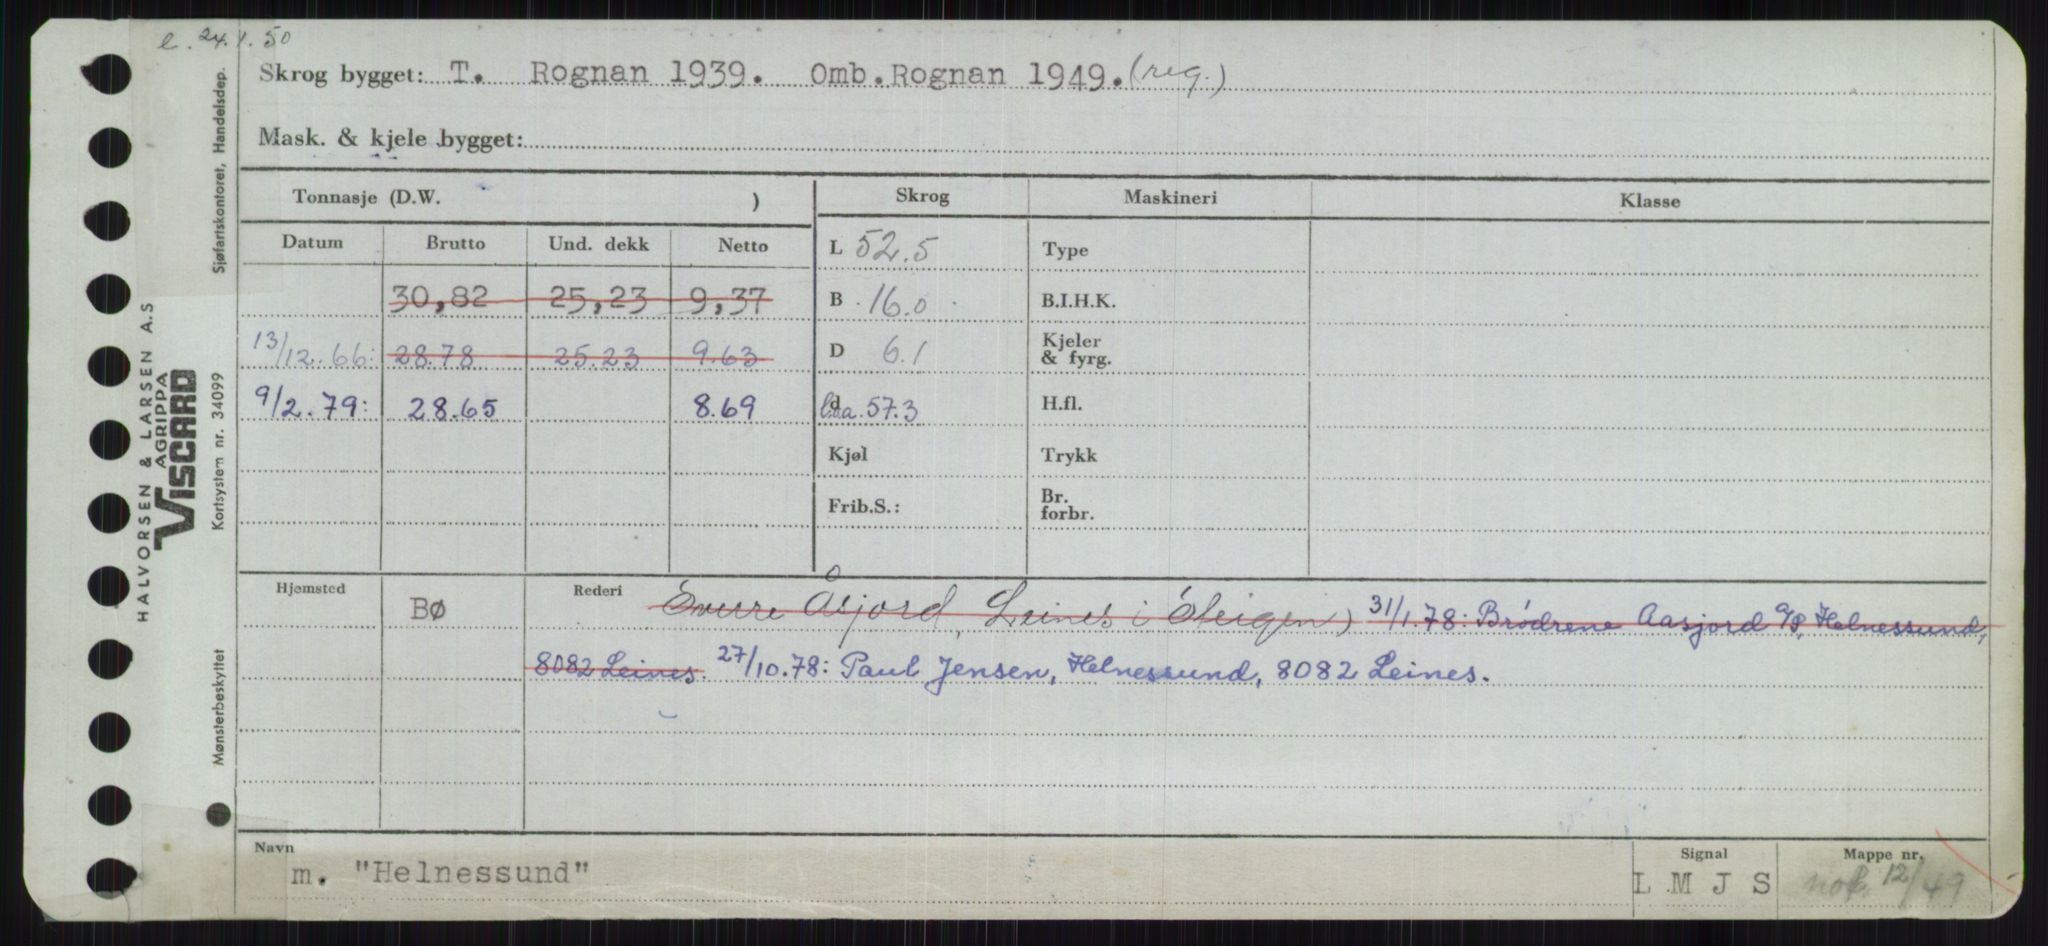 e. 24.1.50
Skrog bygget: T. Rognan 1939. Omb.Rognan 1949.(reg.)
Mask. & kjele bygget:
Tonnasje (D.W. )
Skrog Maskineri Klasse
Datum Brutto Und. dekk Netto
L 52.5 Type
30,82 25,23 9,37 B 16.0 B.I.H.K.
13/12.66: 28.78 25.23 9.63 D 6.1 Kjeler & fyrg.
9/2.79: 28.65 8.69 d l.a. 57.3 H.fl.
Kjøl Trykk
Frib.S.: Br. forbr.
Hjemsted BØ Rederi Sverre Åsjord, Leines i Steigen) 31/1.78: Brødrene Aasjord A/S, Helnessund,
8082 Leines. 27/10.78: Paul Jensen, Helnessund, 8082 Leines.
Navn Signal Mappe nr.
m. "Helnessund" L M J S 12/49
HALVORSEN & LARSEN A.S
AGRIPPA
VISCARD
Mønsterbeskyttet Kortsystem nr. 34099 Sjøfartskontoret, Handelsdep.